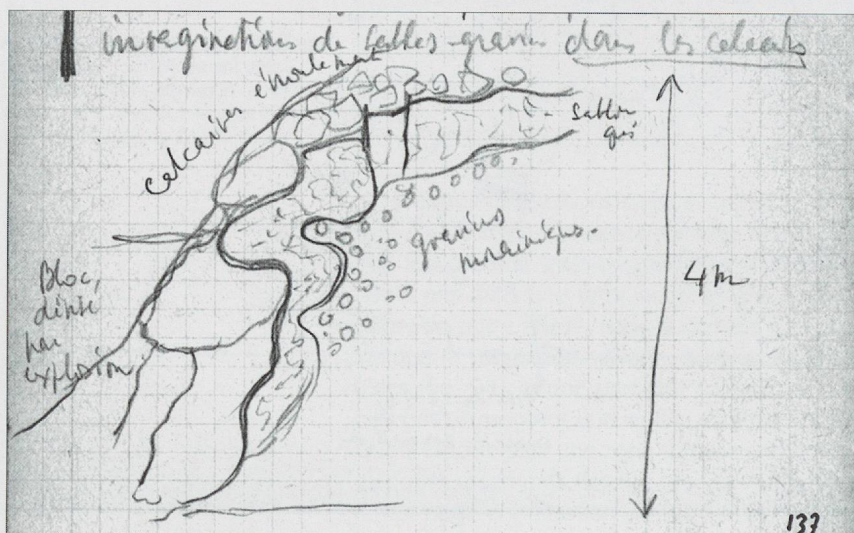 invaginations de sables-graviers dans les calcaires
calcaires éboulement
Sablon
gris
graviers
morainiques.
4m
Bloc,
par
explosion
137